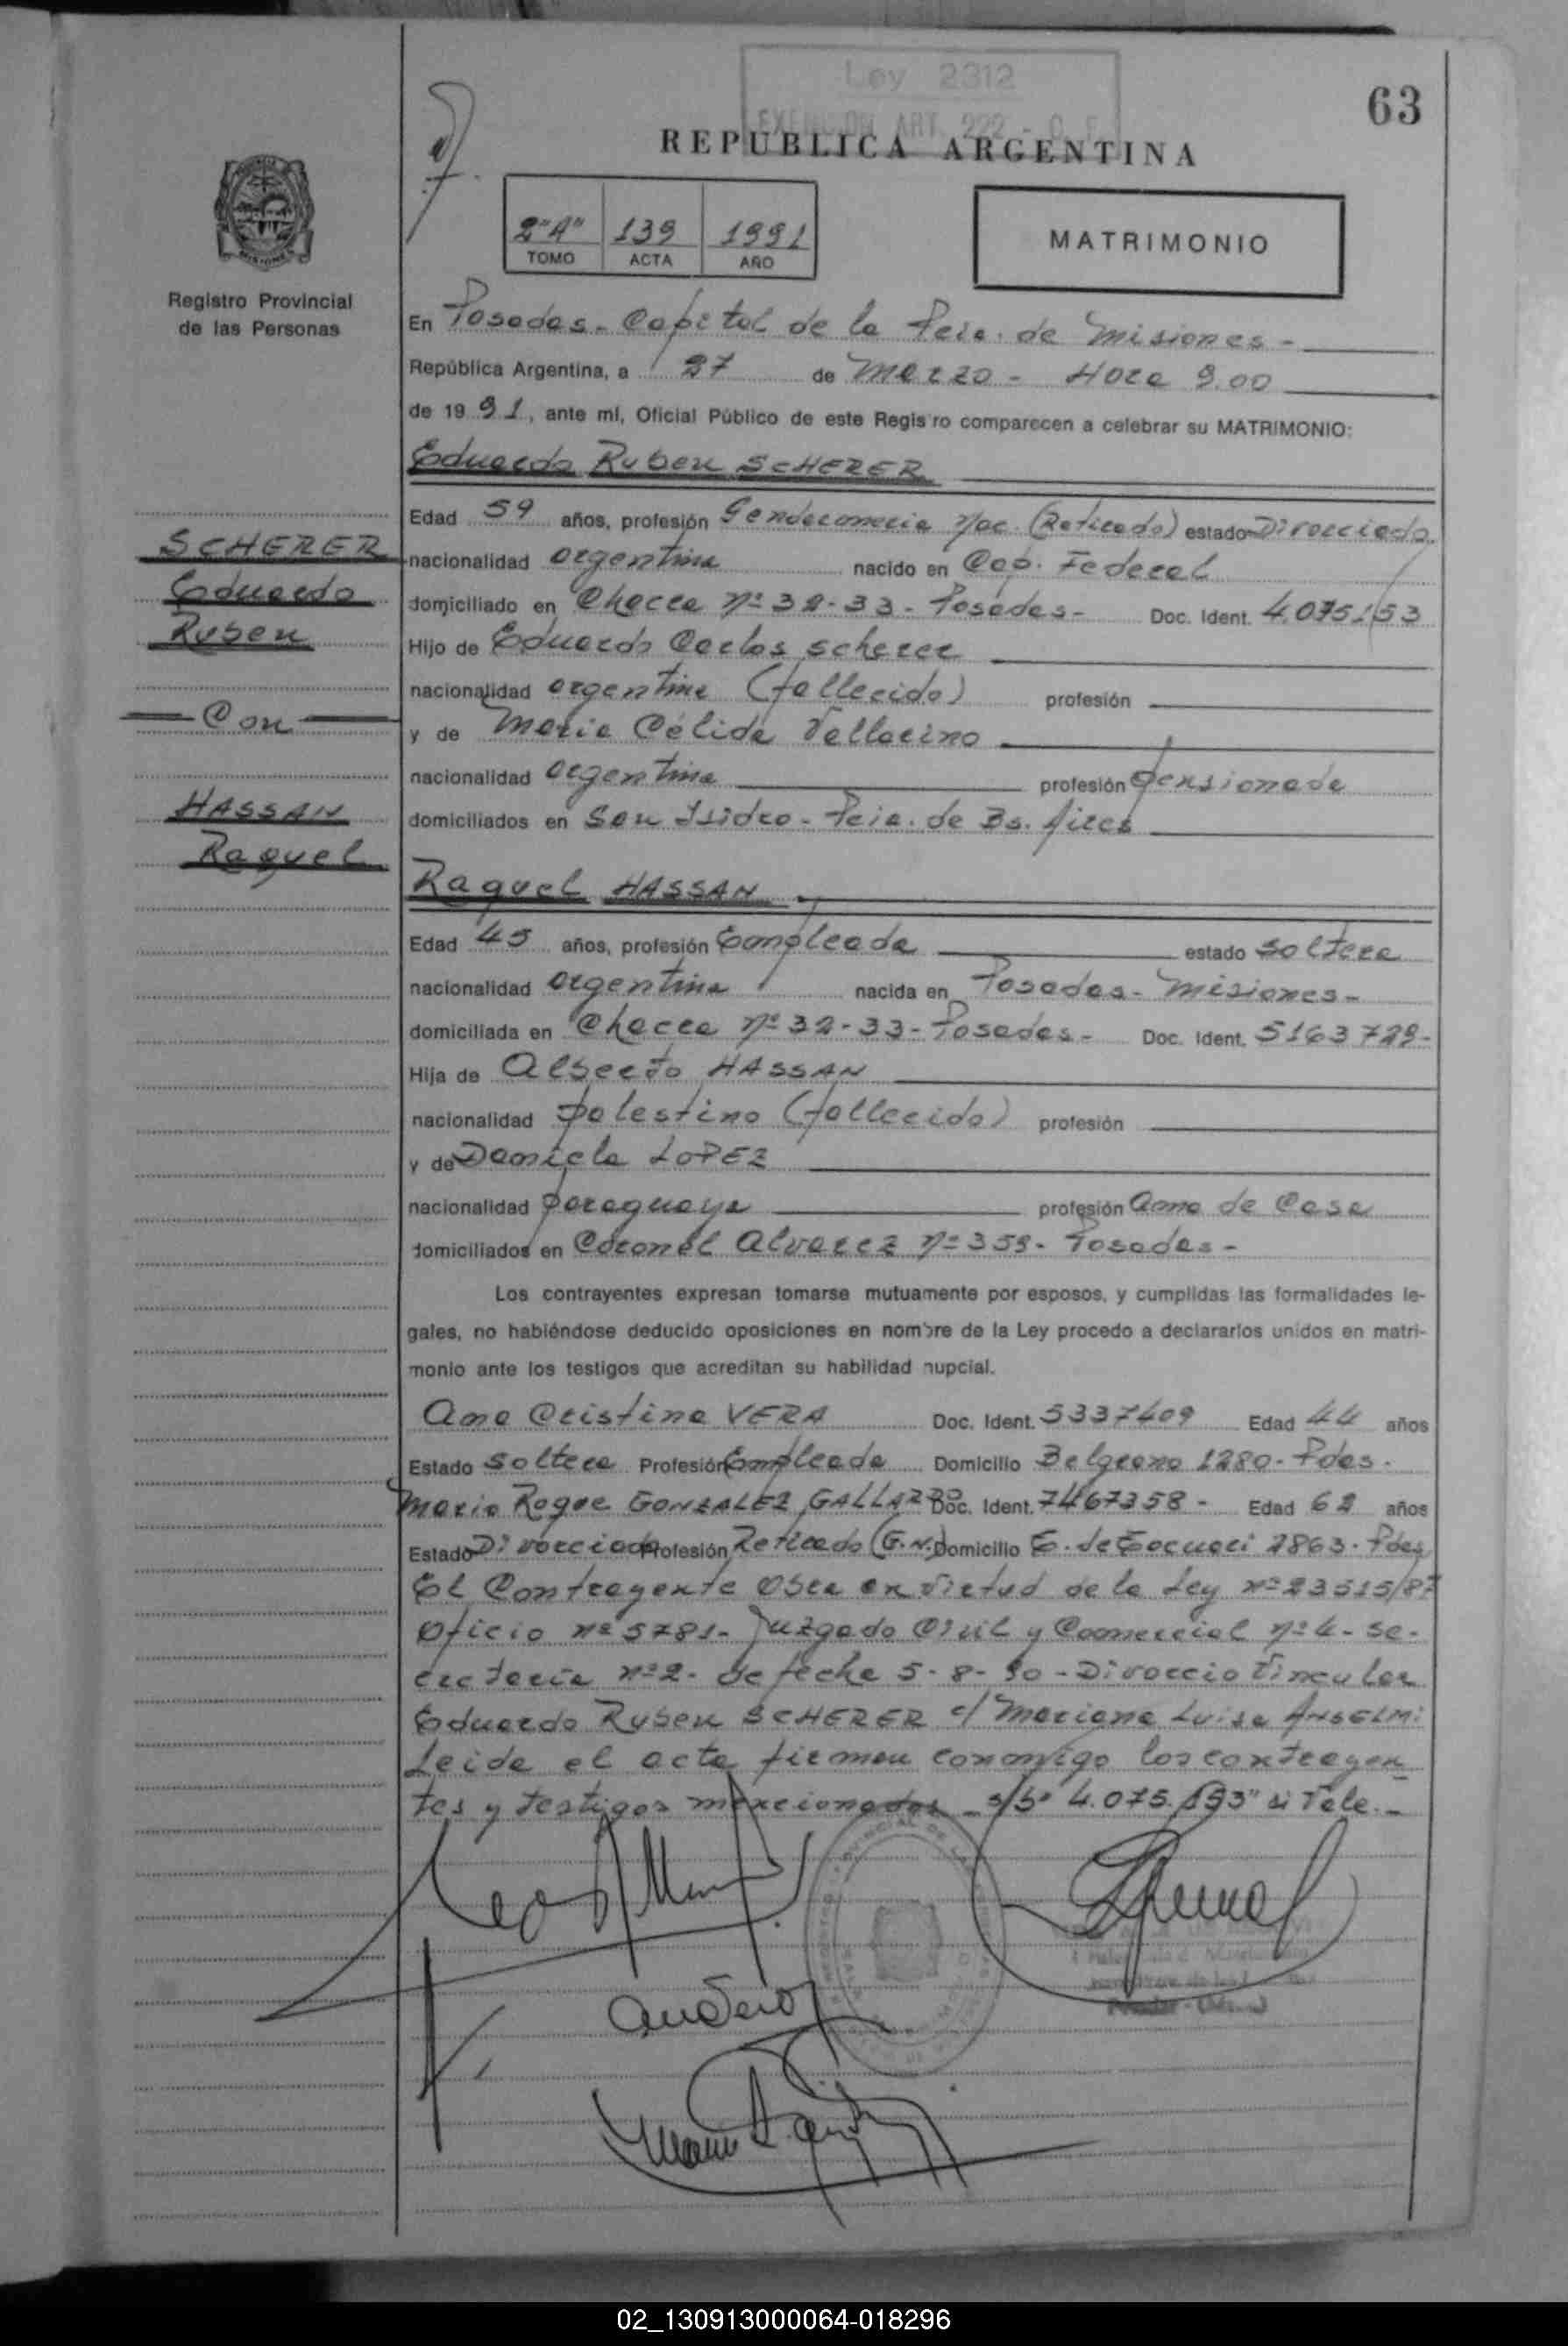 Ley 2312
EXENCION ART. 222 - C. F.
63
REPUBLICA ARGENTINA
2"A" 139 1991
TOMO ACTA AÑO
MATRIMONIO
Registro Provincial
de las Personas
En Posadas - Capital de la Pcia. de Misiones -
República Argentina, a 27 de Marzo - Hora 9.00
de 19 91, ante mí, Oficial Público de este Registro comparecen a celebrar su MATRIMONIO:
Eduardo Ruben SCHERER
Edad 59 años, profesión Gendarmeria Nac. (Retirado) estado Divorciado
SCHERER
Eduardo
Ruben
Con
HASSAN
Raquel
nacionalidad argentina nacido en Cap. Federal
domiciliado en Chacra Nº 32-33 - Posadas - Doc. Ident. 4.075.153
Hijo de Eduardo Carlos Scherer
nacionalidad argentina (fallecido) profesión
y de Maria Célida Vallarino
nacionalidad argentina profesión pensionada
domiciliados en San Isidro - Pcia. de Bs. Aires
Raquel HASSAN
Edad 45 años, profesión Empleada estado soltera
nacionalidad argentina nacida en Posadas - Misiones -
domiciliada en Chacra Nº 32-33 - Posadas - Doc. Ident. 5163729 -
Hija de Alberto HASSAN
nacionalidad palestino (fallecido) profesión
y de Daniela LOPEZ
nacionalidad paraguaya profesión ama de Casa
domiciliados en Coronel Alvarez Nº 359 - Posadas -
Los contrayentes expresan tomarse mutuamente por esposos, y cumplidas las formalidades le-
gales, no habiéndose deducido oposiciones en nombre de la Ley procedo a declararlos unidos en matri-
monio ante los testigos que acreditan su habilidad nupcial.
Ana Cristina VERA Doc. Ident. 5337409 Edad 44 años
Estado soltera Profesión Empleada Domicilio Belgrano 1280 - Pdas.
Mario Roque GONZALEZ GALLARDO Doc. Ident. 7467358 - Edad 62 años
Estado Divorciado Profesión Retirado (G.N.) Domicilio E. de 2863 - Pdas
El Contrayente Obra en virtud de la Ley nº 23515/87
Oficio nº 5781 - Juzgado Civil y Comercial nº 4 - Se-
cretaría nº 2 - de fecha 5-8-90 - Divorcio Vincular
Eduardo Ruben SCHERER c/ Mariana Luisa ANSELMI
Leida el acta firman conmigo los contrayen
tes y testigos mencionados - s/b "4.075.153" si Vale. -
02_130913000064-018296